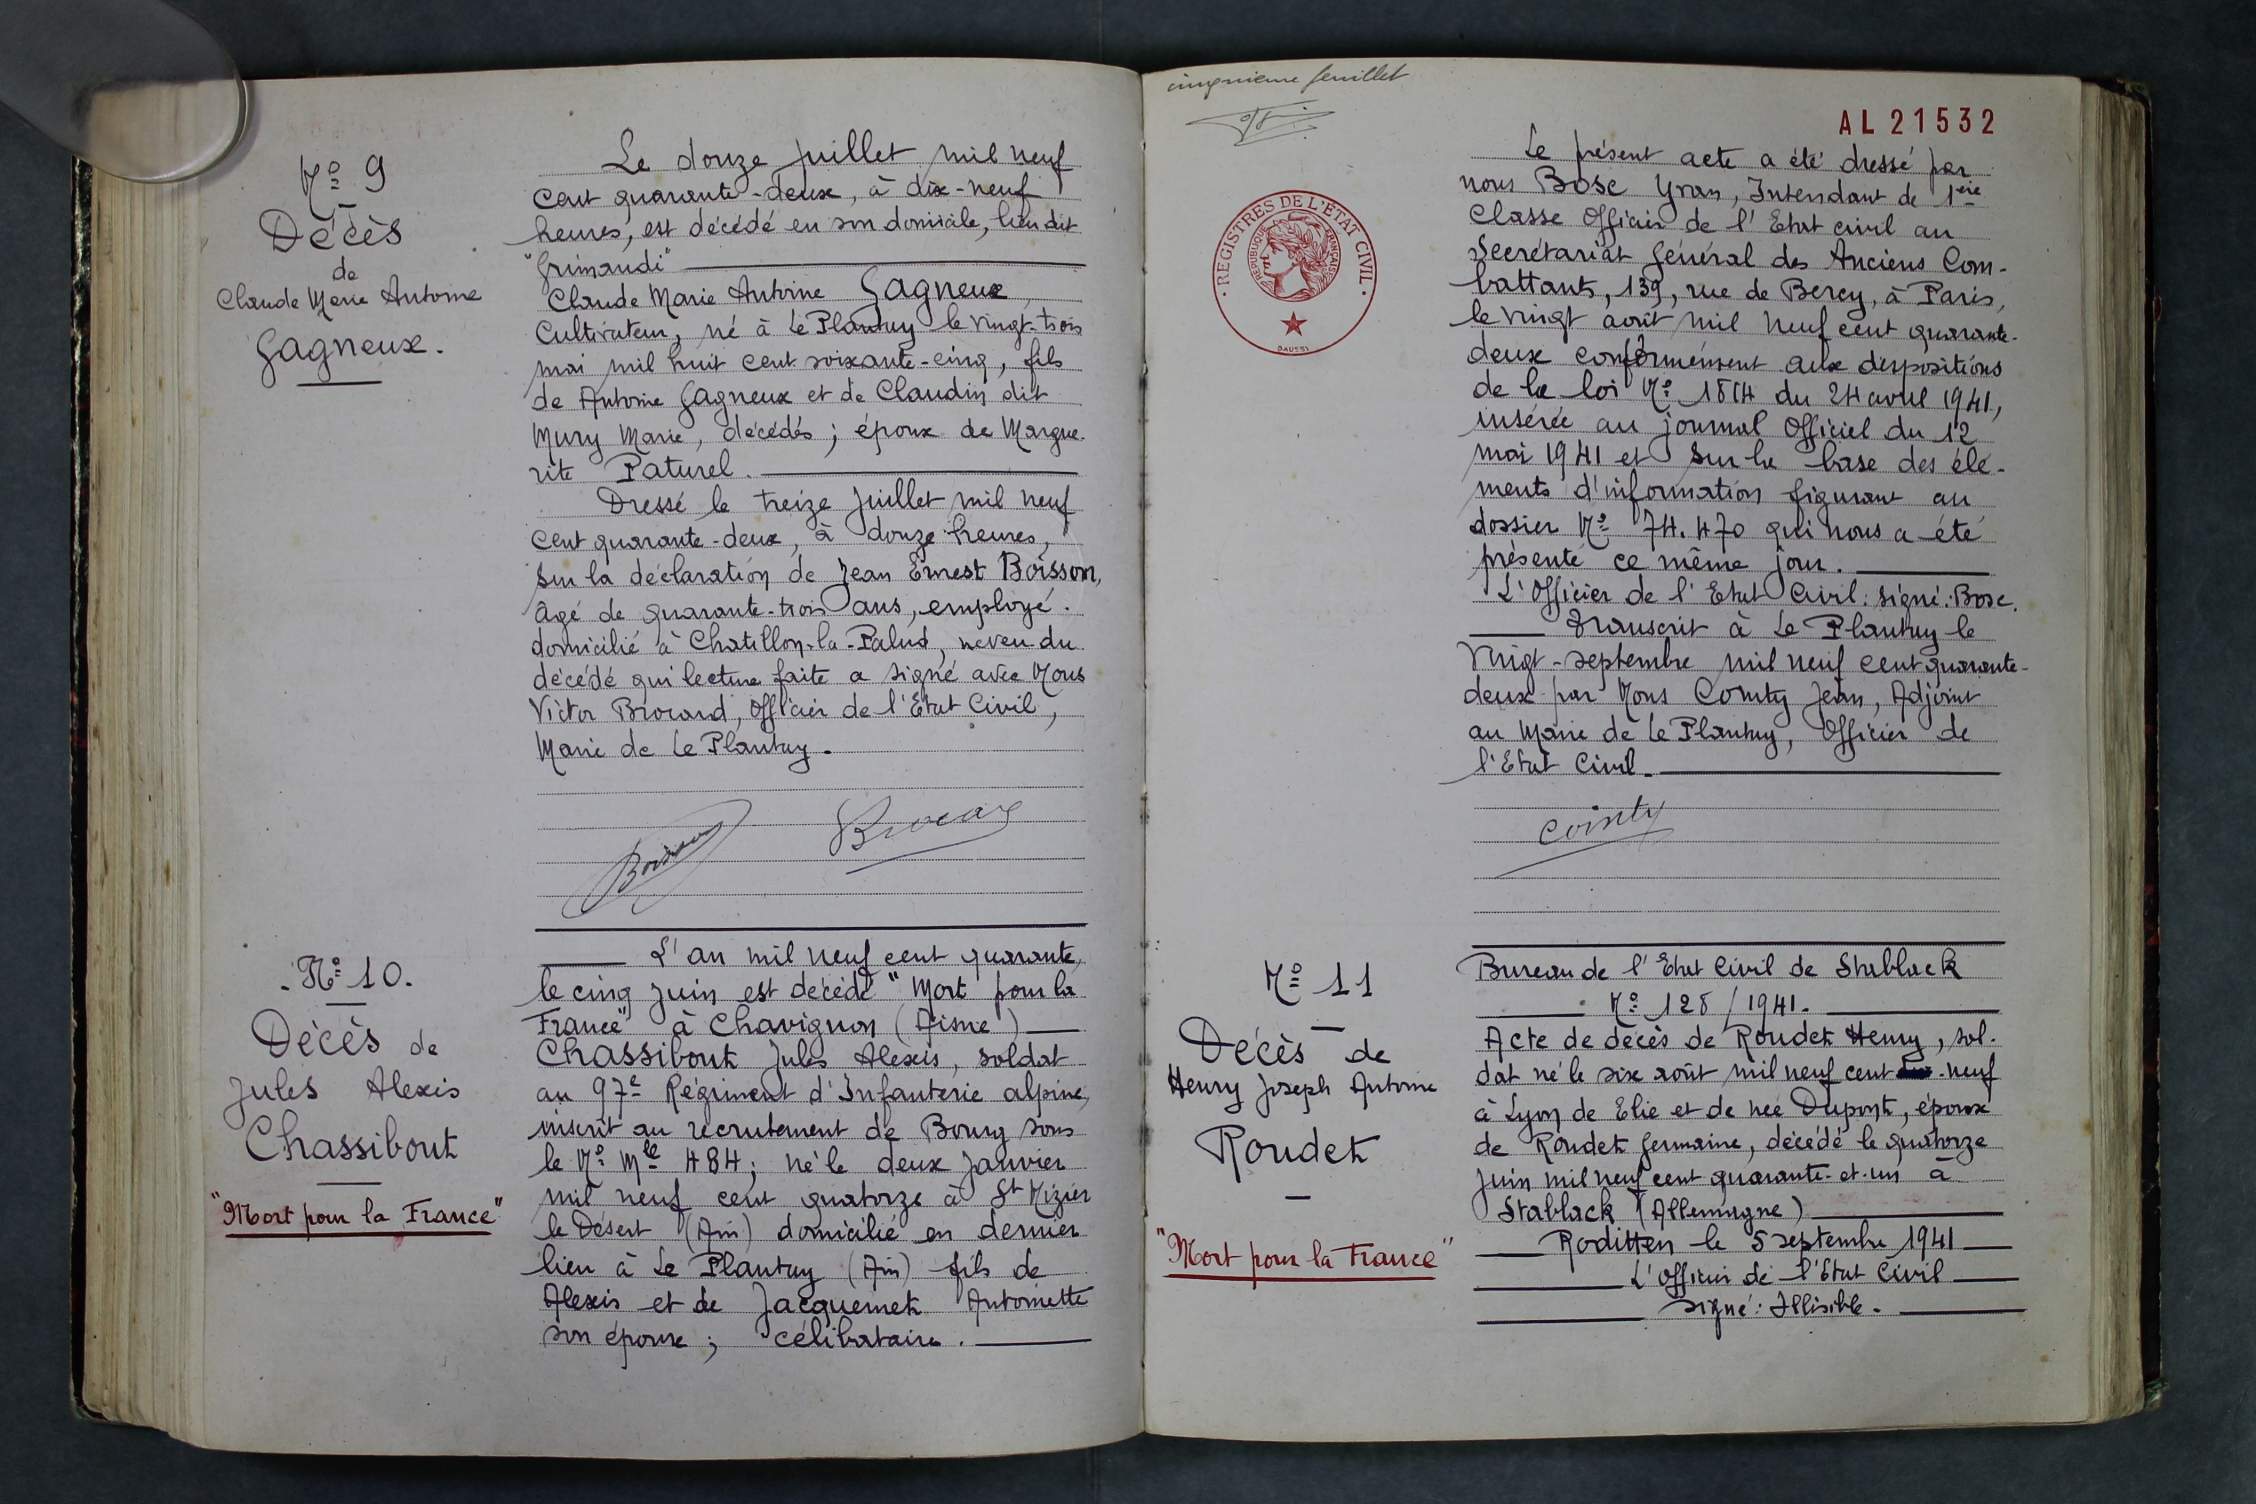 N° 9
Décès
de
Claude Marie Antoine
Gagneux.
Le douze juillet mil neuf
cent quarante-deux, à dix-neuf
heures, est décédé en son domicile, lieu dit
"Grimaudi"
Claude Marie Antoine Gagneux
Cultivateur, né à Le Plantay le vingt-trois
mai mil huit cent soixante-cinq, fils
de Antoine Gagneux et de Claudin dit
Mury Marie, décédés ; époux de Margue-
rite Paturel.
Dressé le treize juillet mil neuf
cent quarante-deux, à douze heures,
sur la déclaration de Jean Ernest Boisson,
âgé de quarante-trois ans, employé.
domicilié à Chatillon-la-Palud, neveu du
décédé qui lecture faite a signé avec Nous
Victor Brocard, Officier de l'Etat Civil,
Maire de Le Plantay.
Boisson
Brocard
N° 10.
Décès de
Jules Alexis
Chassibout
"Mort pour la France"
L'an mil neuf cent quarante,
le cinq juin est décédé "Mort pour la
France" à Chavignon (Aisne)
Chassibout Jules Alexis, soldat
au 97e Régiment d'Infanterie alpine,
inscrit au recrutement de Bourg sous
le N° Mle 484 ; né le deux janvier
mil neuf cent quatorze à St Nizier
le Désert (Ain) domicilié en dernier
lieu à Le Plantay (Ain) fils de
Alexis et de Jacquemet Antoinette
son épouse ; célibataire.
cinquième feuillet
AL 21532
REGISTRES DE L'ÉTAT CIVIL
REPUBLIQUE FRANÇAISE
DAUSSI
Le présent acte a été dressé par
nous Bosc Yvan, Intendant de 1ère
Classe Officier de l'Etat civil au
Secrétariat Général des Anciens Com-
battants, 139, rue de Bercy, à Paris,
le vingt août mil neuf cent quarante-
deux conformément aux dispositions
de la loi N° 1814 du 24 avril 1941,
insérée au journal Officiel du 12
mai 1941 et sur la base des élé-
ments d'information figurant au
dossier N° 74.470 qui nous a été
présenté ce même jour.
L'Officier de l'Etat Civil : signé : Bosc.
Transcrit à Le Plantay le
vingt-septembre mil neuf cent quarante-
deux par Nous Cointy Jean, Adjoint
au Maire de Le Plantay, Officier de
l'Etat Civil.
Cointy
N° 11
Décès de
Henry Joseph Antoine
Roudet
"Mort pour la France"
Bureau de l'Etat Civil de Stablack
N° 128/1941.
Acte de décès de Roudet Henry, sol-
dat né le six août mil neuf cent neuf
à Lyon de Elie et de née Dupont, époux
de Roudet Germaine, décédé le quatorze
juin mil neuf cent quarante-et-un à
Stablack (Allemagne)
Roditten le 5 septembre 1941
L'Officier de l'Etat Civil
signé : Illisible.